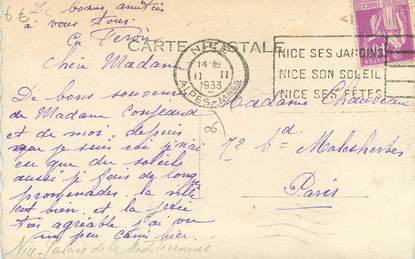 6 €
De bonnes amitiés
à vous tous.
CARTE POSTALE
NICE
14 30
11 II
1933
ALPES-MMES
NICE SES JARDINS
NICE SON SOLEIL
NICE SES FÊTES
Chère Madame
De bons souvenirs
de Madame
et de moi, depuis
que je suis ici j'ai
eu que du soleil
aussi je fais de long
promenades. la ville
est bien, et la
très agréable, j'ai vu
un peu hier.
Madame Chauveau
72 bd Malesherbes
Paris
Nice - Palais de la Méditerranée